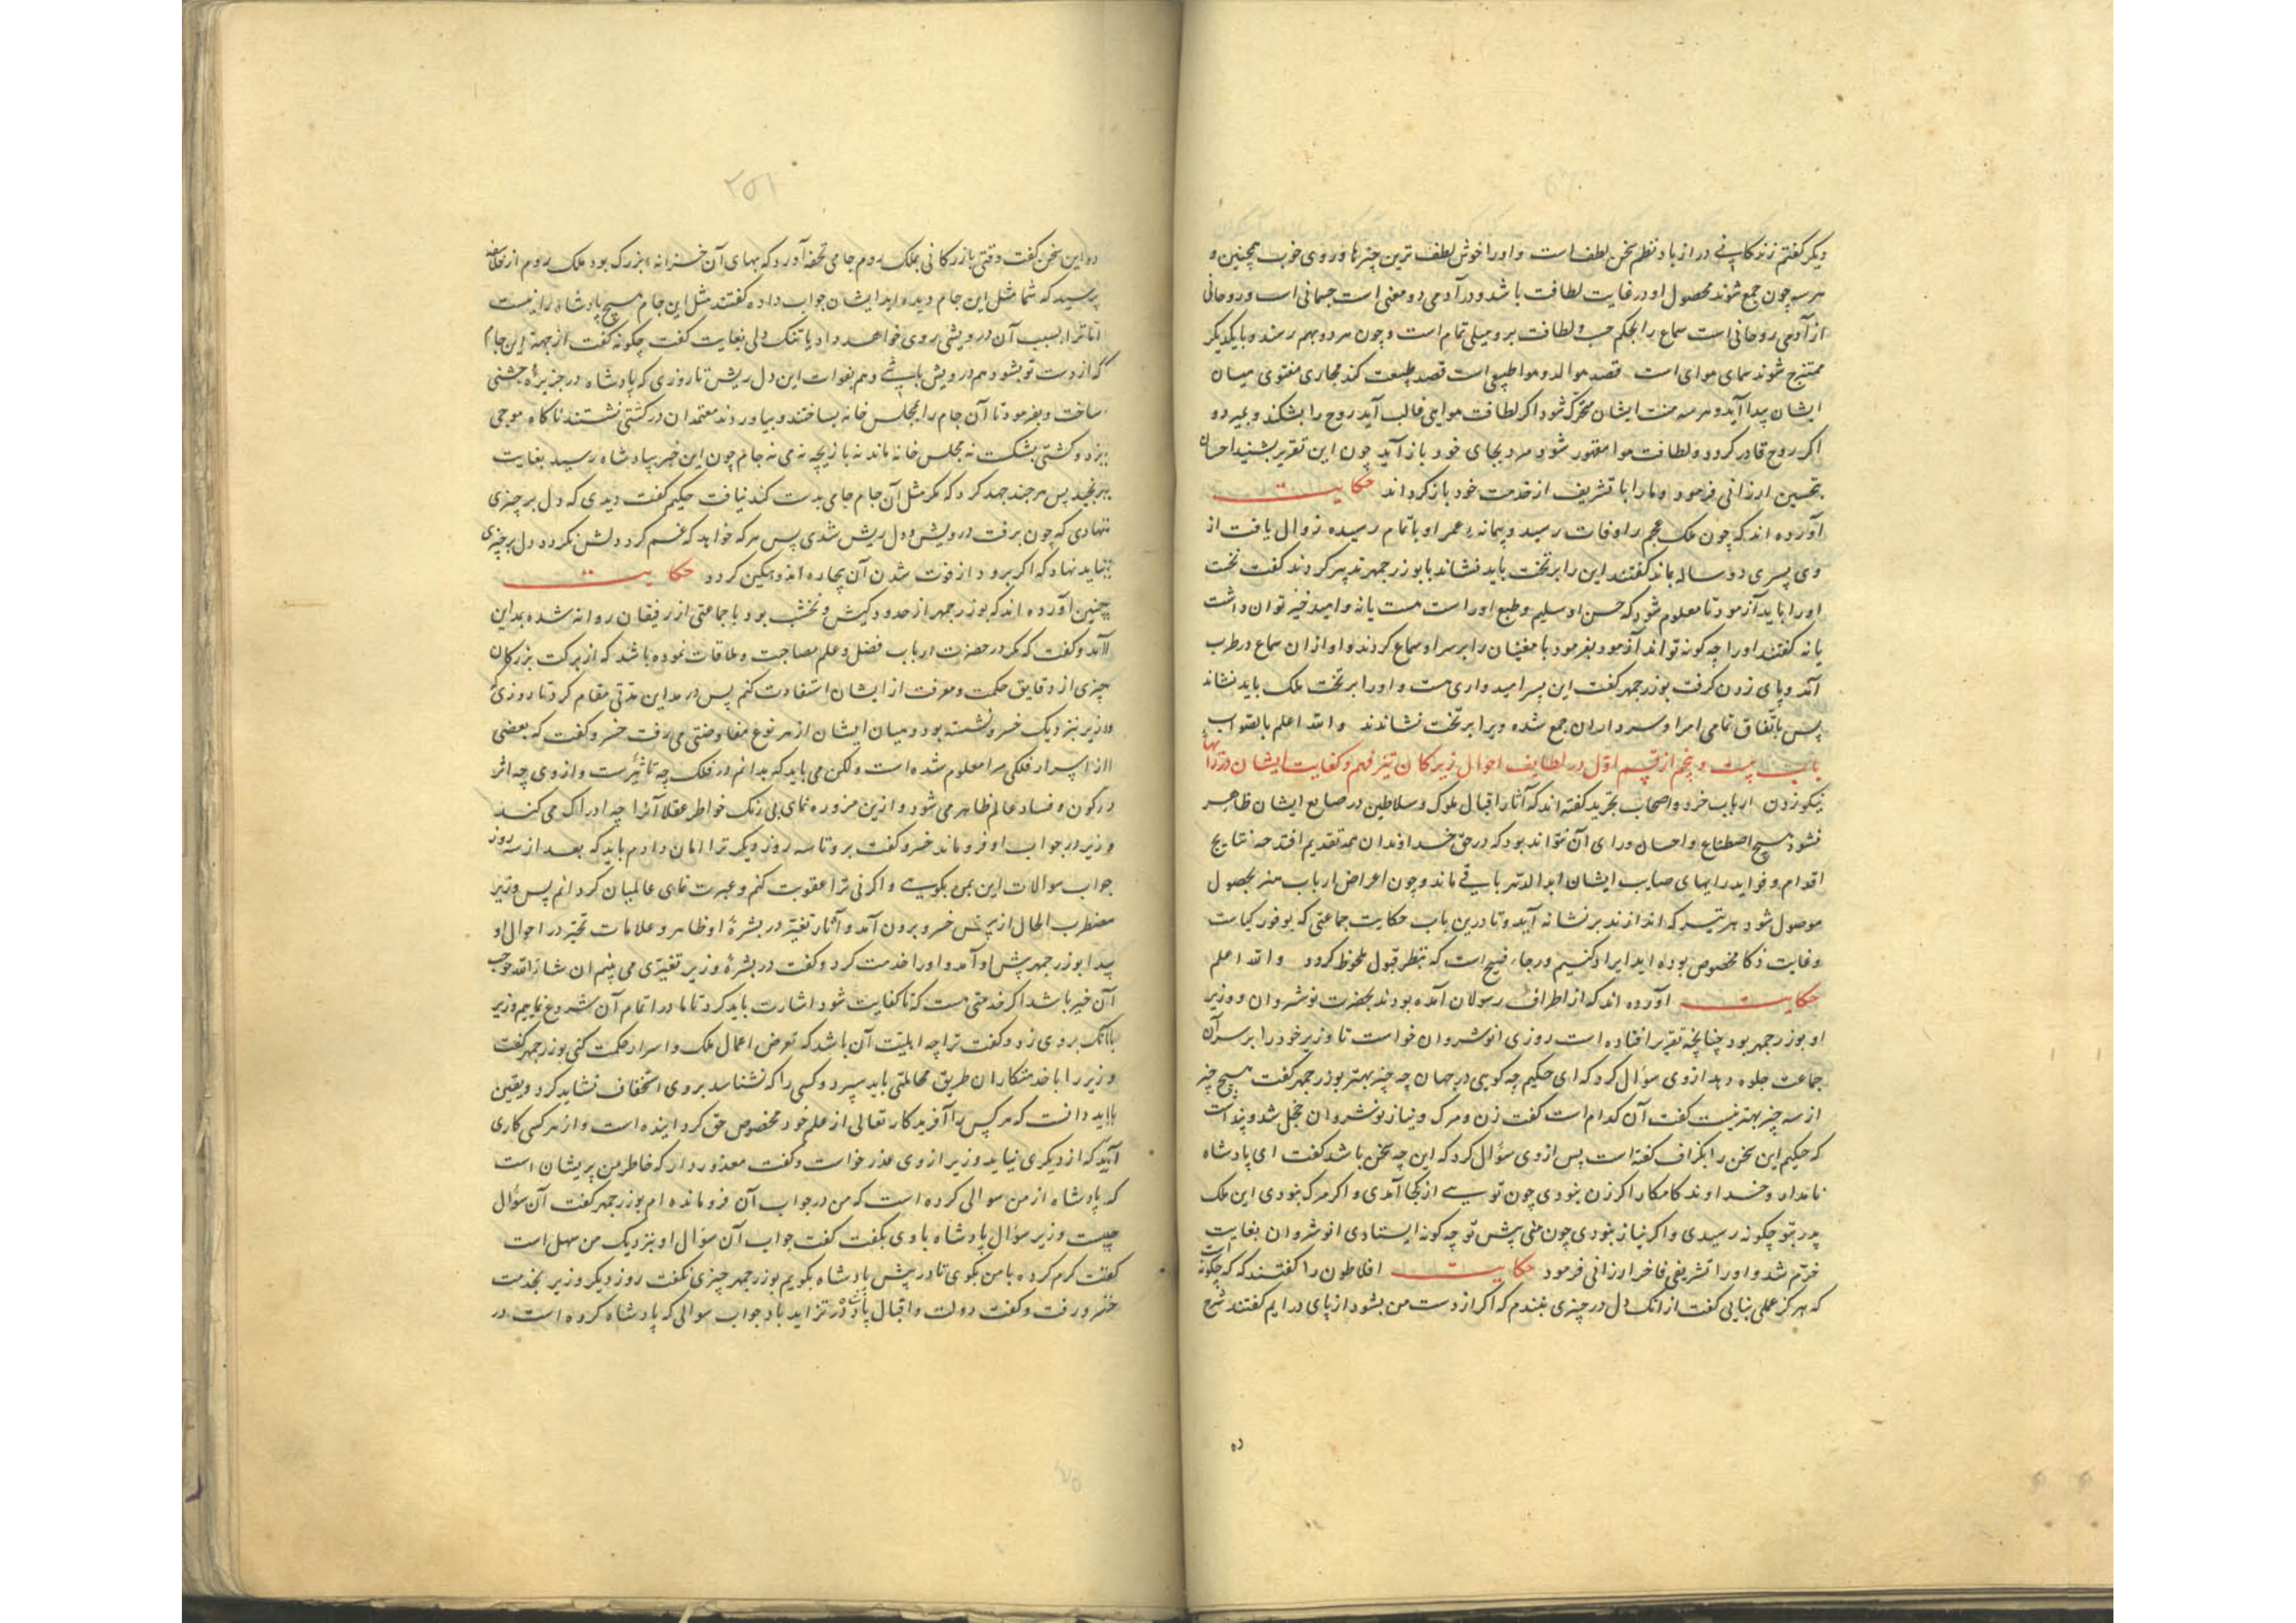 دیکر کفتم زندکانی دراز باد نظم سخن لطف است و اورا خوش لطف ترین چیزها و روی خوب همچنین و
هر سو چون جمع شوند محصول او در غایت لطافت باشد و در آدمی دو معنی است جسمانی است و روحانی
از آدمی روحانی است سماع را بحکم لطافت برو میلی تمام است و چون هر دو بهم رسند و بایکدیکر
ممتزج شوند سمای هوای است قصد موالد و هوا طبیعی است قصد طبیعت کند مجاری میان
ایشان پدا آید و هر سه ایشان متحرک شود اکر لطافت هوایی غالب آید روح را بشکند و بمیرد و
اکر روح قادر کردد و لطافت هوا مقهور شود مرد بجای خود باز آید چون این تقریر بشنید احسان
تحسین ارزانی فرمود و مارا با تشریف از خدمت خود بازکرداند حکایت
آورده اند که چون ملک عجم را وفات رسید و پیمانه عمر او باتمام رسیده زوال یافت از
وی پسری دو ساله بماند کفتند این را بر تخت باید نشاند با بوزرجمهر تدبیر کردند کفت نخست
اورا بباید آزمود تا معلوم شود که حسن او سلیم و طبع اوراست هست یانه و امید خیر توان داشت
یا نه کفتند اورا چه کونه تواند آزمود بفرمود با مغنیان را بر سر او سماع کردند و او از ان سماع در طرب
آمد و پای زدن کرفت بوزرجمهر کفت این پسر امیدواری هست و اورا بر تخت ملک باید نشاند
پس باتفاق تمامی امرا و سرداران جمع شده ویرا بر تخت نشاندند والله اعلم بالصواب
باب بیست و پنجم از قسم اول در لطایف احوال زیرکان تیز فهم و کفایت ایشان در رایها
نیکو زدن ارباب خرد و اصحاب تجربه کفته اند که آثار اقبال ملوک و سلاطین در صنایع ایشان ظاهر
نشود هیچ اصطناع و احسان ورای آن نتواند بود که در حق خداوندان همه تقدیم افتد چه نتایج
اقدام و فواید رایهای صایب ایشان ابدالدهر باقی ماند و چون اعراض ارباب هنر بحصول
موصول شود هر تیر که اندازند بر نشانه آید و تا درین باب حکایت جماعتی که بوفور کیاست
و غایت ذکا مخصوص بوده اند ایراد کنیم و رجاء فسیح است که بنظر قبول ملحوظ کردد والله اعلم
حکایت آورده اند که از اطراف رسولان آمده بودند بحضرت نوشروان و وزیر
او بوزرجمهر بود چنانچه تقریر افتاده است روزی انوشروان خواست تا وزیر خود را بر سر آن
جماعت جلوه دهد ازوی سؤال کرد که ای حکیم چه کویی در جهان چه چیز بهتر بوزرجمهر کفت هیچ چیز
از سه چیز بهتر نیست کفت آن کدام است کفت زن و مرک و نیاز نوشروان خجل شد و پنداشت
که حکیم این سخن را بکزاف کفته است پس ازوی سؤال کرد که این چه سخن باشد کفت ای پادشاه
نامدار و خداوند کامکار اکر زن نبودی چون تویی از کجا آمدی و اکر مرک نبودی این ملک
پدر بتو چکونه رسیدی و اکر نیاز نبودی چون منی پیش تو چه کونه ایستادی انوشروان بغایت
خرم شد و اورا تشریفی فاخر ارزانی فرمود حکایت افلاطون را کفتند که چکونه است
که هرکز غمکین نیایی کفت از انک دل در چیزی نبندم که اکر از دست من بشود از پای درایم کفتند شرح
ده
۲۵۱
ده این سخن کفت وقتی بازرکانی بملک روم جامی تحفه آورد که بهای آن خزانه بزرک بود ملک روم از
پرسید که شما مثل این جام دیده اید ایشان جواب داده کفتند مثل این جام هیچ پادشاه را نیست
اما ترا بسبب آن درویشی روی خواهد داد یا تنک دلی بغایت کفت چکونه کفت از جهت این جام
که از دست تو بشود هم درویش باشی و هم بفوات این دل ریش تا روزی که پادشاه در جزیره جشنی
ساخت و بفرمود تا آن جام را بمجلس خانه بساختند و بیاوردند معتمدان در کشتی نشستند ناکاه موجی
بزد و کشتی بشکست نه مجلس خانه ماند نه بازیچه نه می نه جام چون این خبر بپادشاه رسید بغایت
برنجید پس هرچند جهد کرد که مکر مثل آن جام جامی بدست کند نیافت حکیم کفت دیدی که دل بر چیزی
نهادی که چون برفت درویش و دل ریش شدی پس هر که خواهد که غم کرد دلش نکردد دل بر چیزی
نباید نهاد که اکر برود از فوت شدن آن بیچاره اندوهکین کردد حکایت
چنین آورده اند که بوزرجمهر از حدود کیش و نخشب بود با جماعتی از رفیقان روانه شده بمداین
آمد و کفت که مکر در حضرت ارباب فضل و علم مصاحبت و ملاقات نموده باشد که از برکت بزرکان
چیزی از دقایق حکمت و معرفت از ایشان استفادت کنم پس در مداین مدتی مقام کرد تا روزی
وزیر بنزدیک خسرو نشسته بود و میان ایشان از هر نوع مفاوضتی می رفت خسرو کفت که بعضی
از اسرار فلکی مرا معلوم شده است ولکن می باید که بدانم در فلک چه تاثیرست و از وی چه اثر
در کون و فساد عالم ظاهر می شود و ازین مزوره نمای بی رنک خواطر عقلا آنرا چه ادراک می کند
وزیر در جواب او فرو ماند خسرو کفت برو تا سه روز دیکر ترا امان دادم باید که بعد از سه روز
جواب سوالات این بمن بکویی و اکرنی ترا عقوبت کنم و عبرت نمای عالمیان کردانم پس وزیر
مضطرب الحال از پیش خسرو برون آمد و آثار تغیر در بشرهٔ او ظاهر و علامات تحیر در احوال او
پیدا بوزرجمهر پیش او آمد و اورا خدمت کرد و کفت در بشرهٔ وزیر تغیری می بینم ان شاء الله موجب
آن خیر باشد اکر خدمتی هست که ناکفایت شود اشارت باید کرد تا ما در اتمام آن شروع نماییم وزیر
بانک بروی زد و کفت ترا چه اهلیت آن باشد که تعرض اعمال ملک و اسرار حکمت کنی بوزرجمهر کفت
وزیر را با خدمتکاران طریق مجاملتی باید سپرد و کسی را که نشناسد بروی استخفاف نشاید کرد و یقین
بباید دانست که هر کس را آفریدکار تعالی از علم خود مخصوص حق کردانیده است و از هر کسی کاری
آید که از دیکری نیاید وزیر ازوی عذر خواست و کفت معذور دار که خاطر من پریشان است
که پادشاه از من سوالی کرده است که من در جواب آن فرو مانده ام بوزرجمهر کفت آن سؤال
چیست وزیر سؤال پادشاه با وی بکفت کفت جواب آن سؤال او بنزدیک من سهل است
کفت کرم کرده با من بکوی تا در پیش پادشاه بکویم بوزرجمهر چیزی نکفت روز دیکر وزیر بخدمت
خسرو رفت و کفت دولت و اقبال پادشاه در تزاید باد جواب سوالی که پادشاه کرده است در